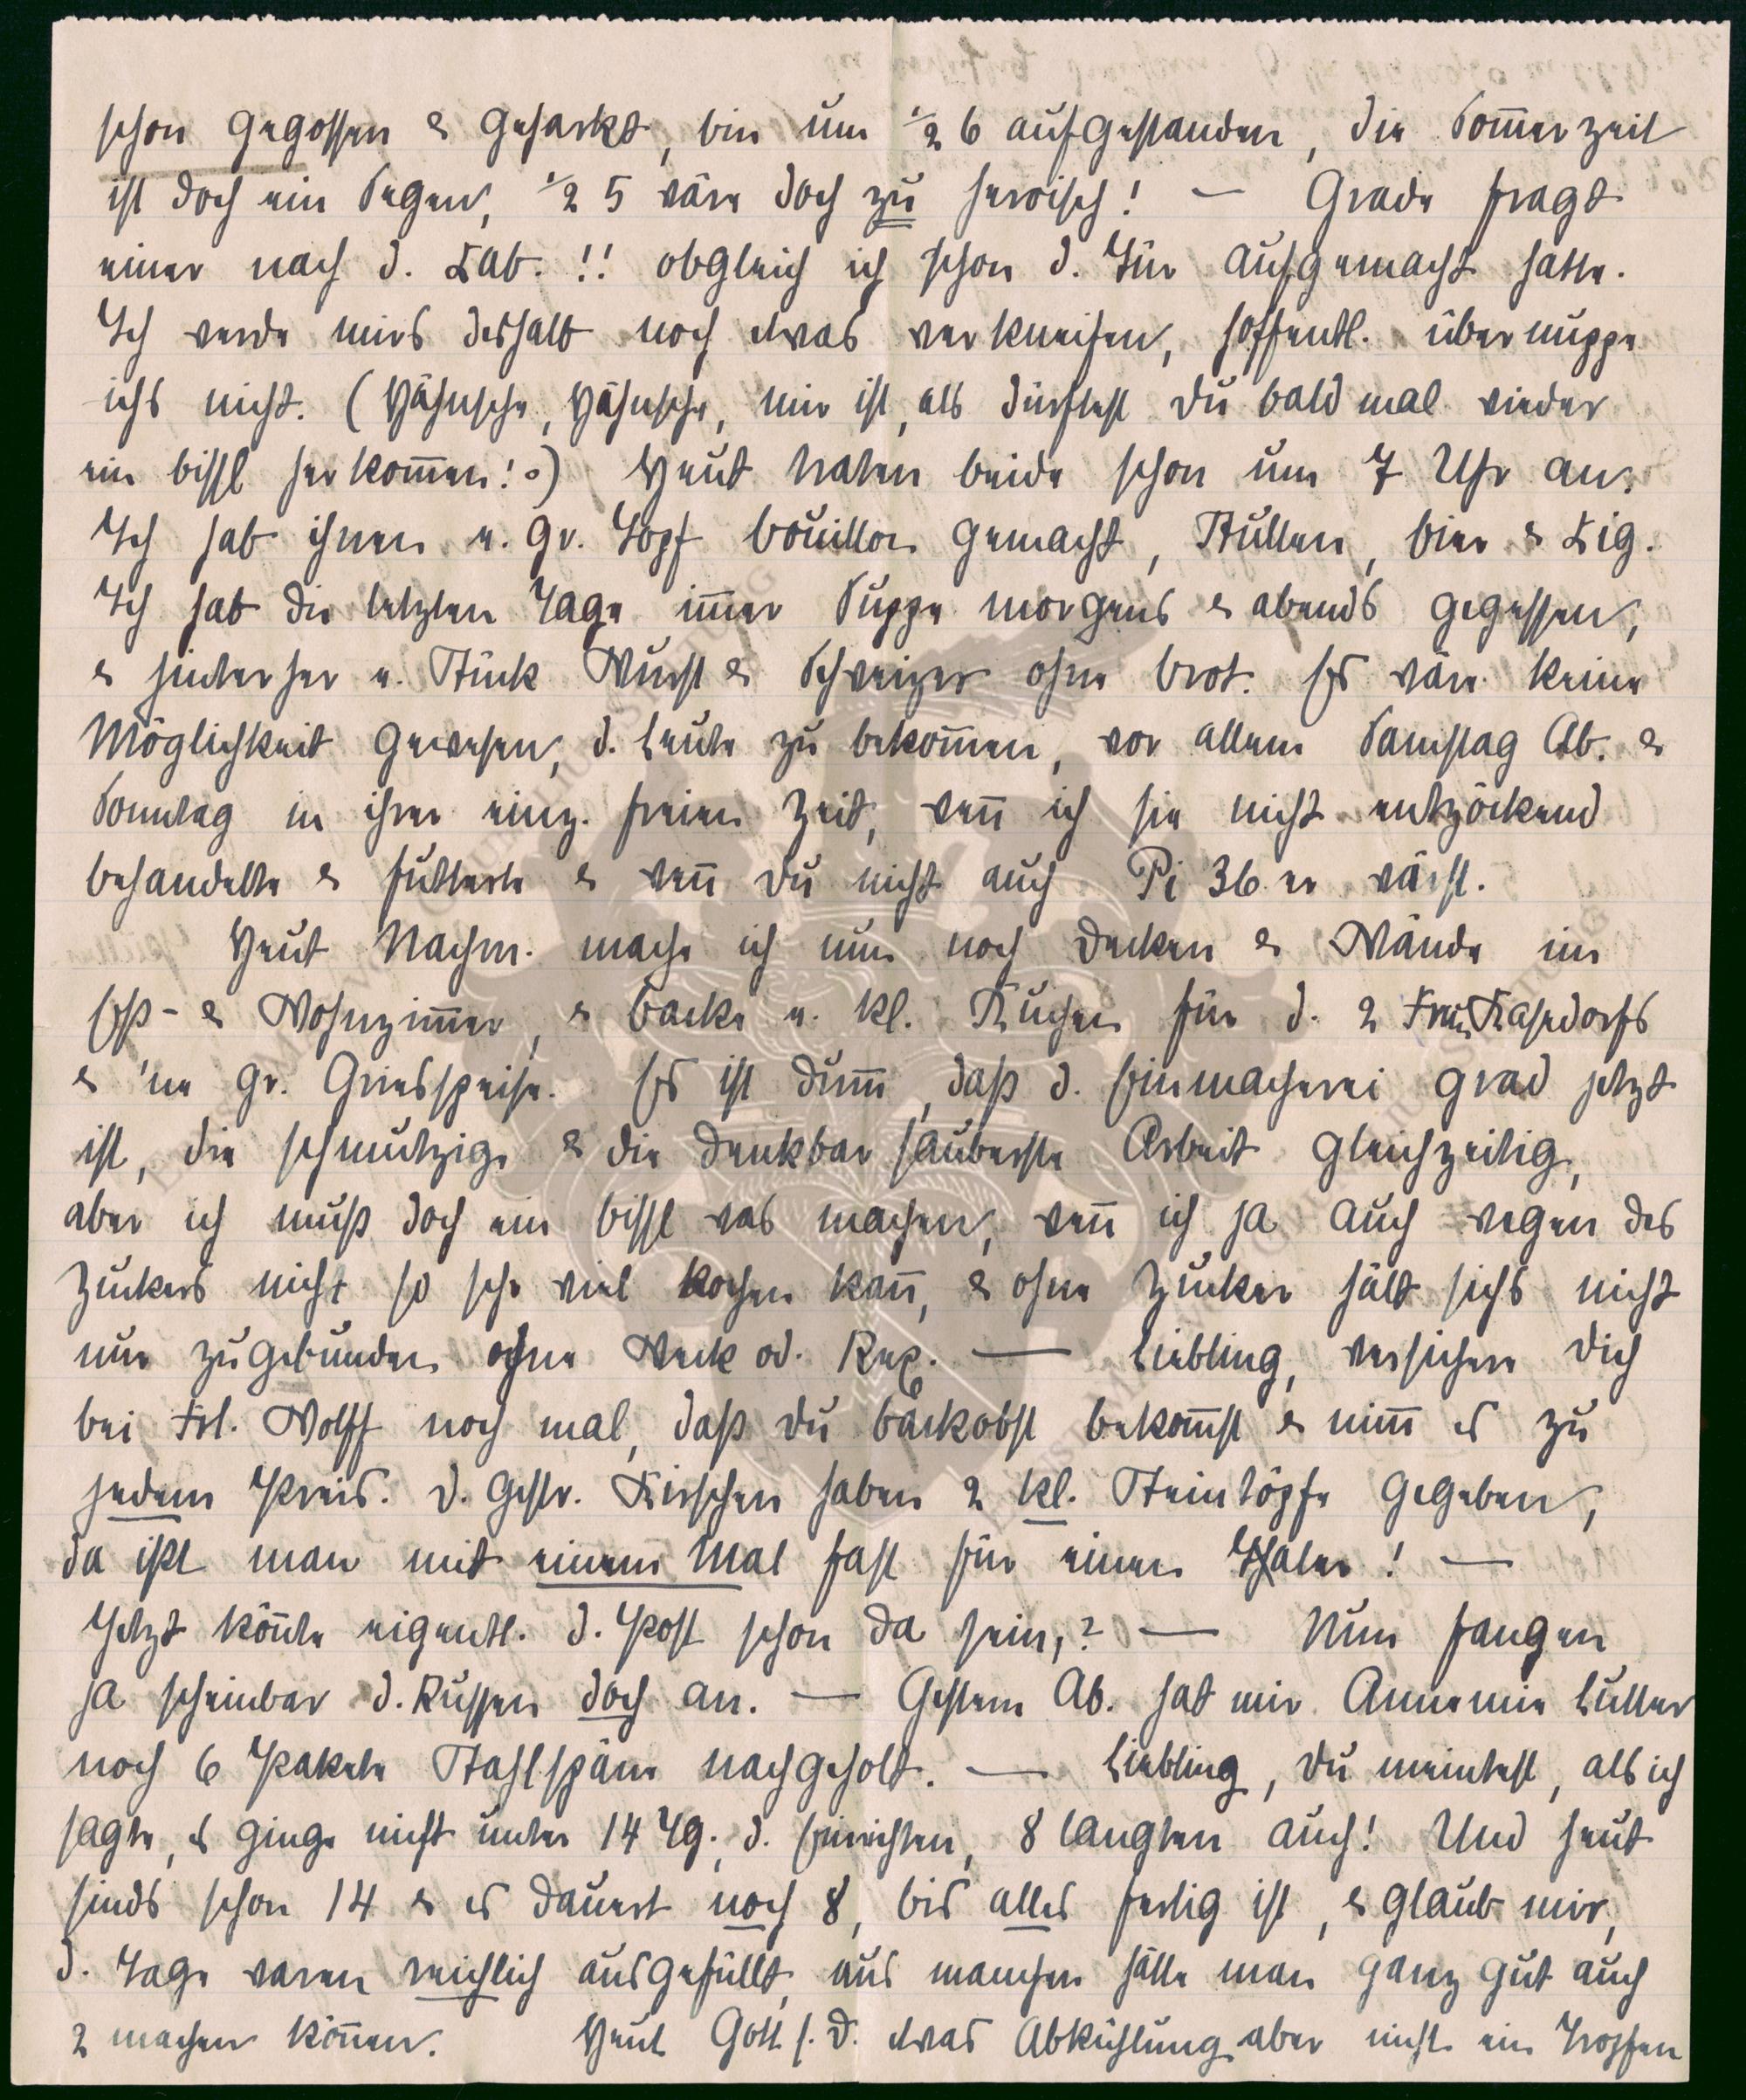 schon gegossen & geharkt, bin um ½ 6 aufgestanden, die Sommerzeit
ist doch ein Segen, ½ 5 wäre doch zu heroisch! — Grade fragt
einer nach d. Lab. !! obgleich ich schon d. Tür aufgemacht hatte.
Ich werde mirs deshalb noch etwas verkneifen, hoffentl.
ichs nicht. (Hähnsche, Hähnsche, mir ist, als dürftest Du bald mal wieder
ein bissl herkommen! ) Heut traten beide schon um 7 Uhr an.
Ich hab ihnen e. gr. Topf Bouillon gemacht, Stullen, Bier & Zig.
Ich hab die letzten Tage immer Suppe morgens & abends gegessen,
& hinterher e. Stück Wurst & Schweizer ohne Brot. Es wäre keine
Möglichkeit gewesen, d. Leute zu bekommen, vor allem Samstag Ab. &
Sonntag in ihrer einz. freien Zeit, wenn ich sie nicht entzöckend
behandelte & futterte & wenn Du nicht auch Pi 36 er wärst.
Heut Nachm. mache ich nun noch Decken & Wände im
Eß- & Wohnzimmer, & backe e. kl. Kuchen für d. 2 Frln Kasedorfs
& 'ne gr. Griesspeise. Es ist dumm, daß d. Einmacherei grad jetzt
ist, die schmutzige & die denkbar sauberste Arbeit gleichzeitig,
aber ich muß doch ein bissl was machen, wenn ich ja auch wegen des
Zuckers nicht so sehr viel kochen kann, & ohne Zucker hält sichs nicht
nur zugebunden ohne Weck od. Rex. — Liebling, versichere Dich
bei Frl. Wolff noch mal, daß Du Backobst bekommst & nimm es zu
jedem Preis. D. gestr. Kirschen haben 2 kl. Steintöpfe gegeben,
da ißt man mit einem Mal fast für einen Thaler! —
Jetzt könnte eigentl. d. Post schon da sein,? — Nun fangen
ja scheinbar d. Russen doch an. — Gestern Ab. hat mir Annemie Lutter
noch 6 Pakete Stahlspäne nachgeholt. — Liebling, Du meintest, als ich
sagte, es ginge nicht unter 14 Tg. d. Einrichten, 8 langten auch! Und heut
sinds schon 14 & es dauert noch 8, bis alles fertig ist, & glaub mir,
d. Tage waren reichlich ausgefüllt, aus manchem hätte man ganz gut auch
2 machen können. Heut Gott s. D. etwas Abkühlung aber nicht ein Tropfen